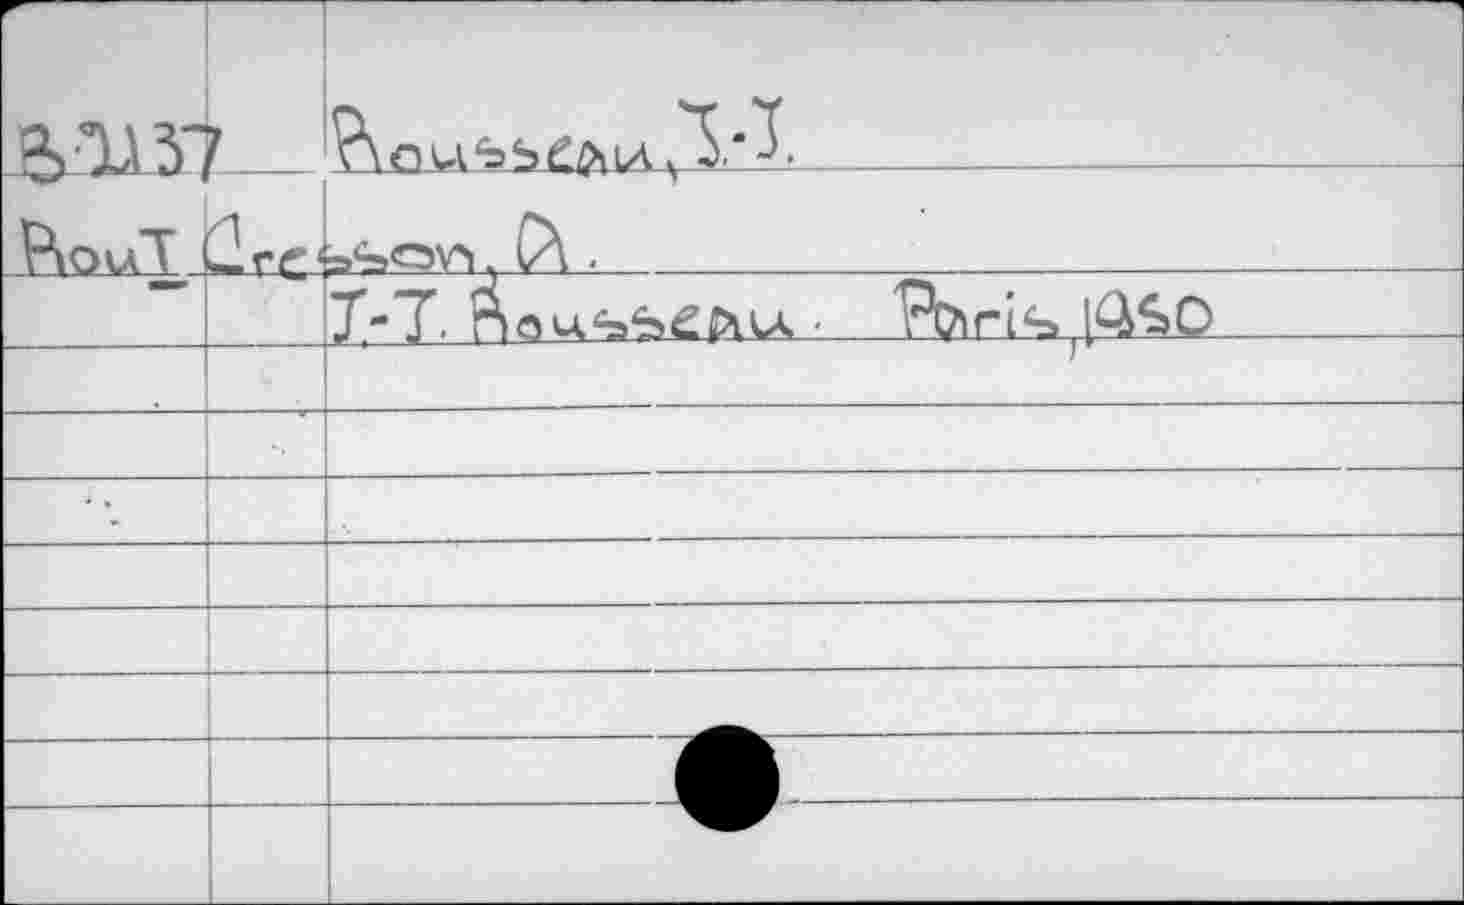 B2137 Rousseau, J.-J.
RouT Cresson, A.
J.-J. Rousseau. Paris, 1950